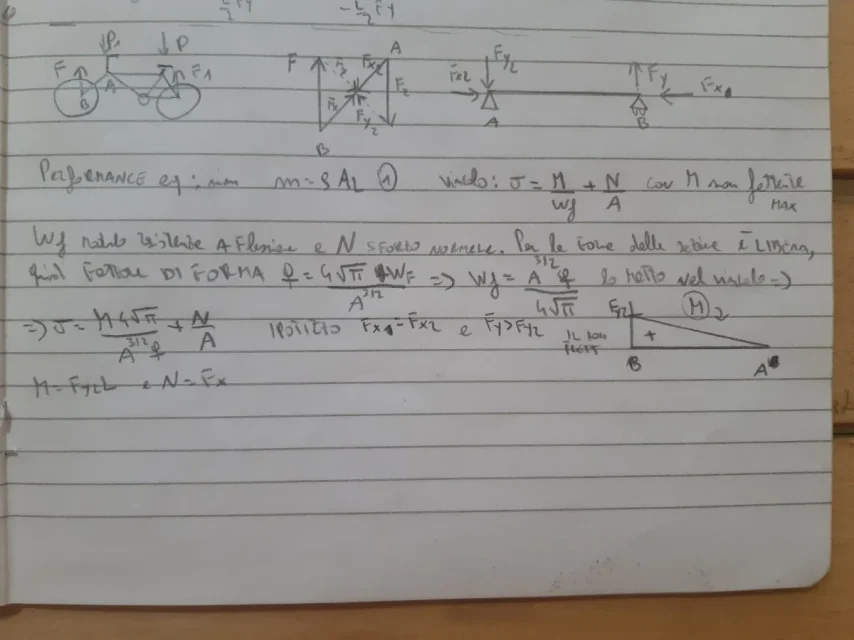 L/2 Fy -L/2 Fy
P1 P F A B F1
F F2 Fx2 A F2 Fx Fy2 B
Fx2 Fy2 A Fy B Fx
PERFORMANCE eq: min m = ρAL ① vincolo: σ = M/Wf + N/A con M mom flettente MAX
Wf modulo resistente A Flessione e N SFORZO NORMALE. Per la forma della sezione È LIBERA,
quindi FATTORE DI FORMA φ = 4√π Wf / A^3/2 => Wf = A^3/2 φ / 4√π lo metto nel vincolo =>
=> σ = M 4√π / A^3/2 φ + N/A IPOTIZZO Fx1 = Fx2 e Fy > Fy2
Fy2L M 2 + B A
M = Fy2L e N = Fx